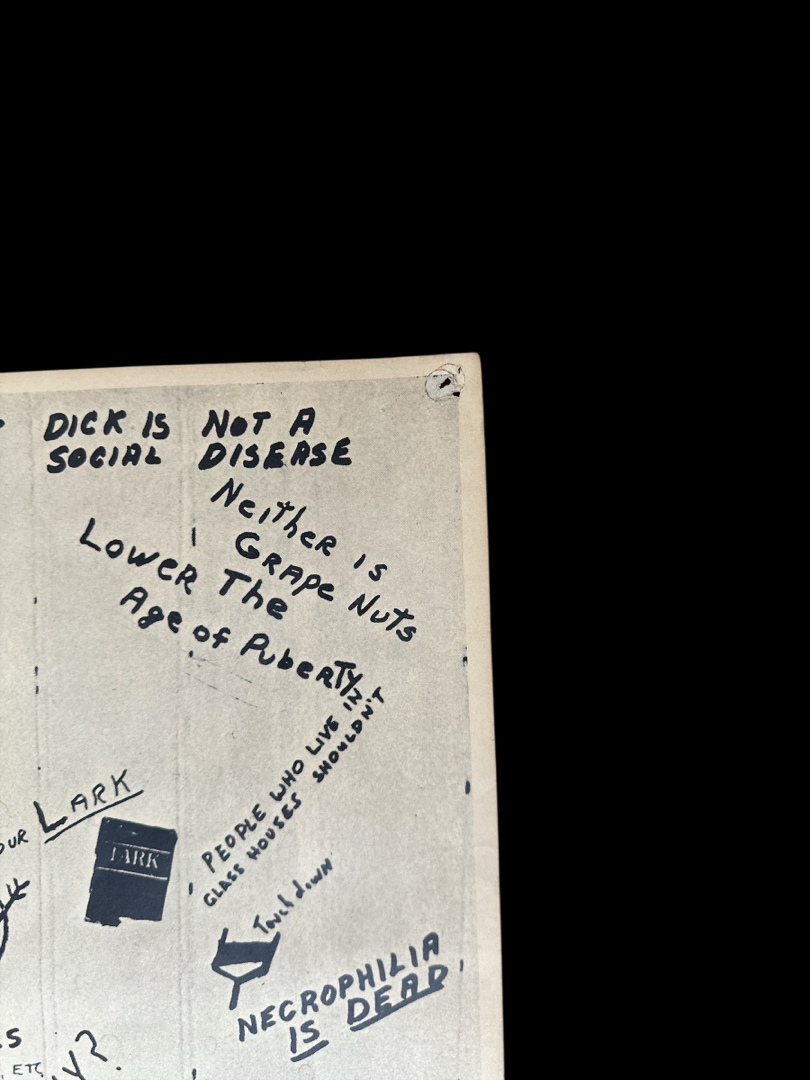 DICK IS NOT A
SOCIAL DISEASE
NeitheR is
GRApe Nuts
LoweR The
Age of PubeRTY
PEOPLE WHO LIVE IN
GLASS HOUSES SHOULDN'T
OUR LARK
LARK
Touch down
NECROPHILIA
IS DEAD
S
, ETC
Y?